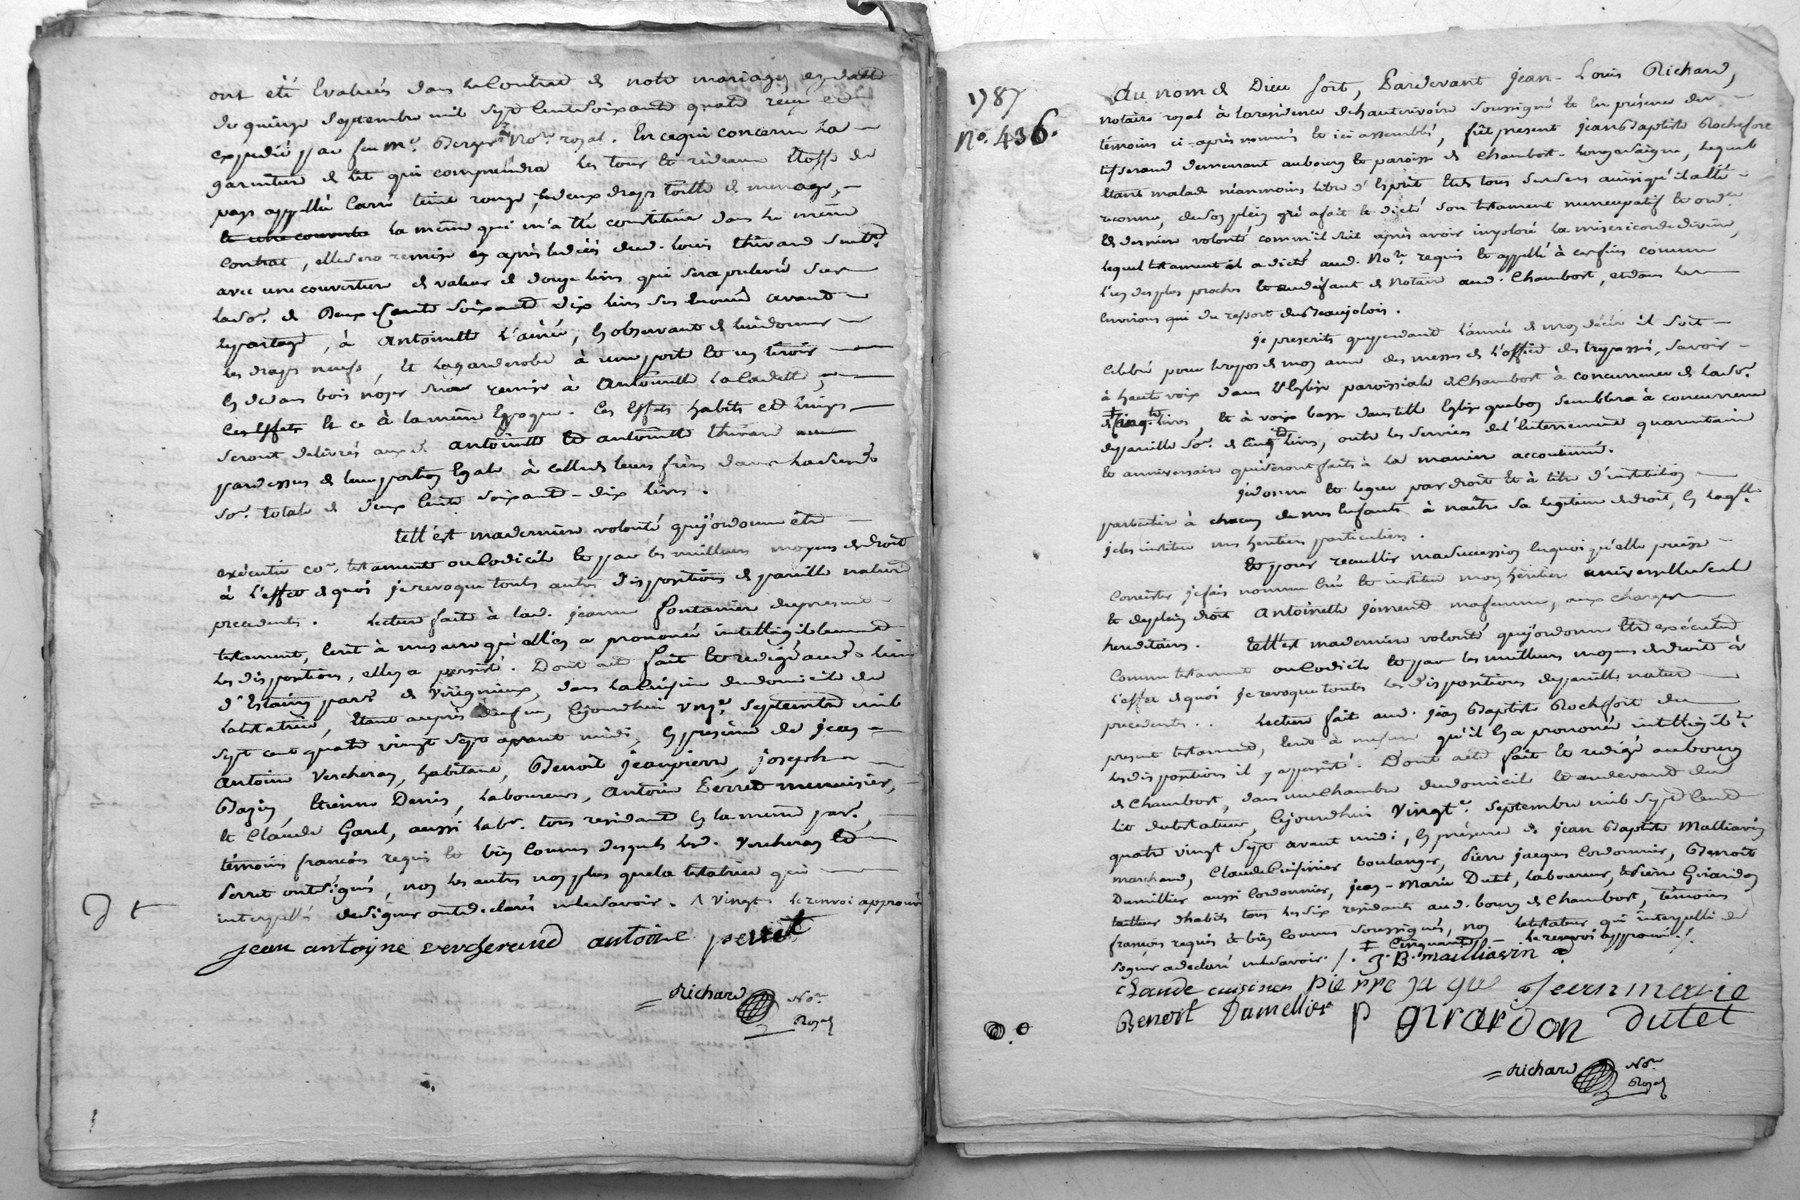 ont été Evalués dans le Contrat de notre mariage, en datte
du quinze Septembre mil Sept Cent Soixante quatre reçu et
expedié par feu me. Berger Nore. royal. En ce qui concerne la
garniture de lit qui comprendra les tour et rideaux Etoffe du
pays appellée Carré teint rouge, les deux draps toille de menage,
et une couverte la même qui m'a été constituée dans le même
Contrat, elle sera remise après le décès dud. Louis thévard
avec une couverture de valeur de douze livres qui sera prelevée sur
la So. de Deux Cents Soixante dix livres Sus énoncé avant
le partage, à Antoinette l'ainée, En observant de lui donner
les draps neufs, et la garderobe à une porte et un tiroir
En dedans bois noyer Sera remise à Antoinette la Cadette,
Ces Effets et ce à la même Epoque. Ces Effets habits et linges
Seront delivrés aux d. antoinette et antoinette thévard
par dessus de leur portion Egale à celle de leurs frères dans lad.
So. totale de deux Cents Soixante-dix livres.
tell'est ma dernière volonté que j'ordonne être
exécutée co. testament ou Codicile et par les meilleurs moyens de droit
à l'effet de quoi je revoque touts autres dispositions de pareille nature
precedents. Lecture faite à lad. jeanne fontanier du present
testament, Ecrit à mesure qu'elle en a prononcé intelligiblement
les dispositions, elle y a persisté. Dont acte fait et redigé aud. lieu
d'Estaing parse. de Viricgnieux, dans la Cuisine du domicile de
la testatrice, Etant auprès du feu, Cejourdhui unze Septembre mil
Sept cent quatre vingt Sept avant midi, En présence de jean
Antoine Vercherand, habitant, Benoit jeanpierre, joseph
Bazin, Etienne Denis, laboureurs, Antoine Perret menuisier,
et Claude Garel, aussi labr. tous residants En la même par.,
témoins françois requis et bien Connus desquels led. Vercherand et
Perret ont Signés, non les autres non plus que la testatrice qui
interpellés de Signer ont declarés ne le Savoir. ∧ Vingt. le renvoi approuvé
jean antoyne vercherand antoine peret
= Richard Nore.
Royal
1787
No. 436.
Au nom de Dieu soit, Pardevant Jean-Louis Richard,
notaire royal à la residence de hauterivoire Soussigné et En présence des
témoins ci-après nommés et ici assemblés, fût present Jean Baptiste Rochefort
tisserand demeurant au bourg et paroisse de Chambost-Longessaigne, lequel
Etant malade néanmoins libre d'Esprit Et de tous Ses Sens ainsi qu'il a été
reconnu, de Son plein gré a fait et dicté Son testament nuncupatif et ord.
Et derniere volonté comm'il Suit après avoir imploré la misericorde divine,
lequel testament il a dicté aud. Nore. requis et appellé à ces fins comme
l'un des plus proches et au défaut de Notaire aud. Chambost, et dans les
Environs qui du ressort du Beaujolois.
je prescrits que pendant l'année de mon décès il Soit
Celebré pour le repos de mon ame des messes de l'office des trepassés, Savoir
à haute voix dans l'Eglise paroissiale de Chambost à concurrence de la So.
de Cinqte livres, et à voix basse dans tell' Eglise que bon Semblera à concurrence
de pareille So. de Cinqte livres, outre les Services de l'Enterrement quarantain
et anniversaire qui Seront faits à la maniere accoutumée.
je donne et legue par droit et à titre d'institution
particulière à chacun de mes Enfants à naitre Sa legitime de droit, En laquelle
je les institue mes heritiers particuliers.
Et pour recueillir ma Succession En quoi qu'elle puisse
Consister je fais nomme Crée et institue mon héritier universellement
et de plein droit Antoinette jomend ma femme, aux charges
hereditaires. tell'est ma derniere volonté que j'ordonne Etre exécutée
Comme testament ou Codicile et par les meilleurs moyens de droit à
l'effet de quoi je revoque toutes les dispositions de pareille nature
precedentes. Lecture faite aud. jean Baptiste Rochefort du
present testament, Ecrit à mesure qu'il En a prononcé intelligibl.
les dispositions il y a persisté. Dont acte fait et redigé au bourg
de Chambost, dans une Chambre du domicile et au devant du
lit du testateur, Cejourdhui Vingte. Septembre mil Sept Cent
quatre vingt Sept avant midi, En présence de jean Baptiste Malliavin
marchand, Claude Cuisinier boulanger, Pierre jacques Cordonnier, Benoit
Dumillier aussi Cordonnier, jean-Marie Dutel, laboureur, et Pierre Girardon
tailleur d'habits tous les Six residants aud. bourg de Chambost, témoins
françois requis et bien Connus Soussignés, non le testateur qui interpellé de
Signer a declaré ne le Savoir. ‡ Cinquante le renvoi approuvé.
J. B. malliavin
Claude cuisinier pierre jaque Jeanmarie
Benoit Dumellier P girardon dutel
= Richard Nore
Royal